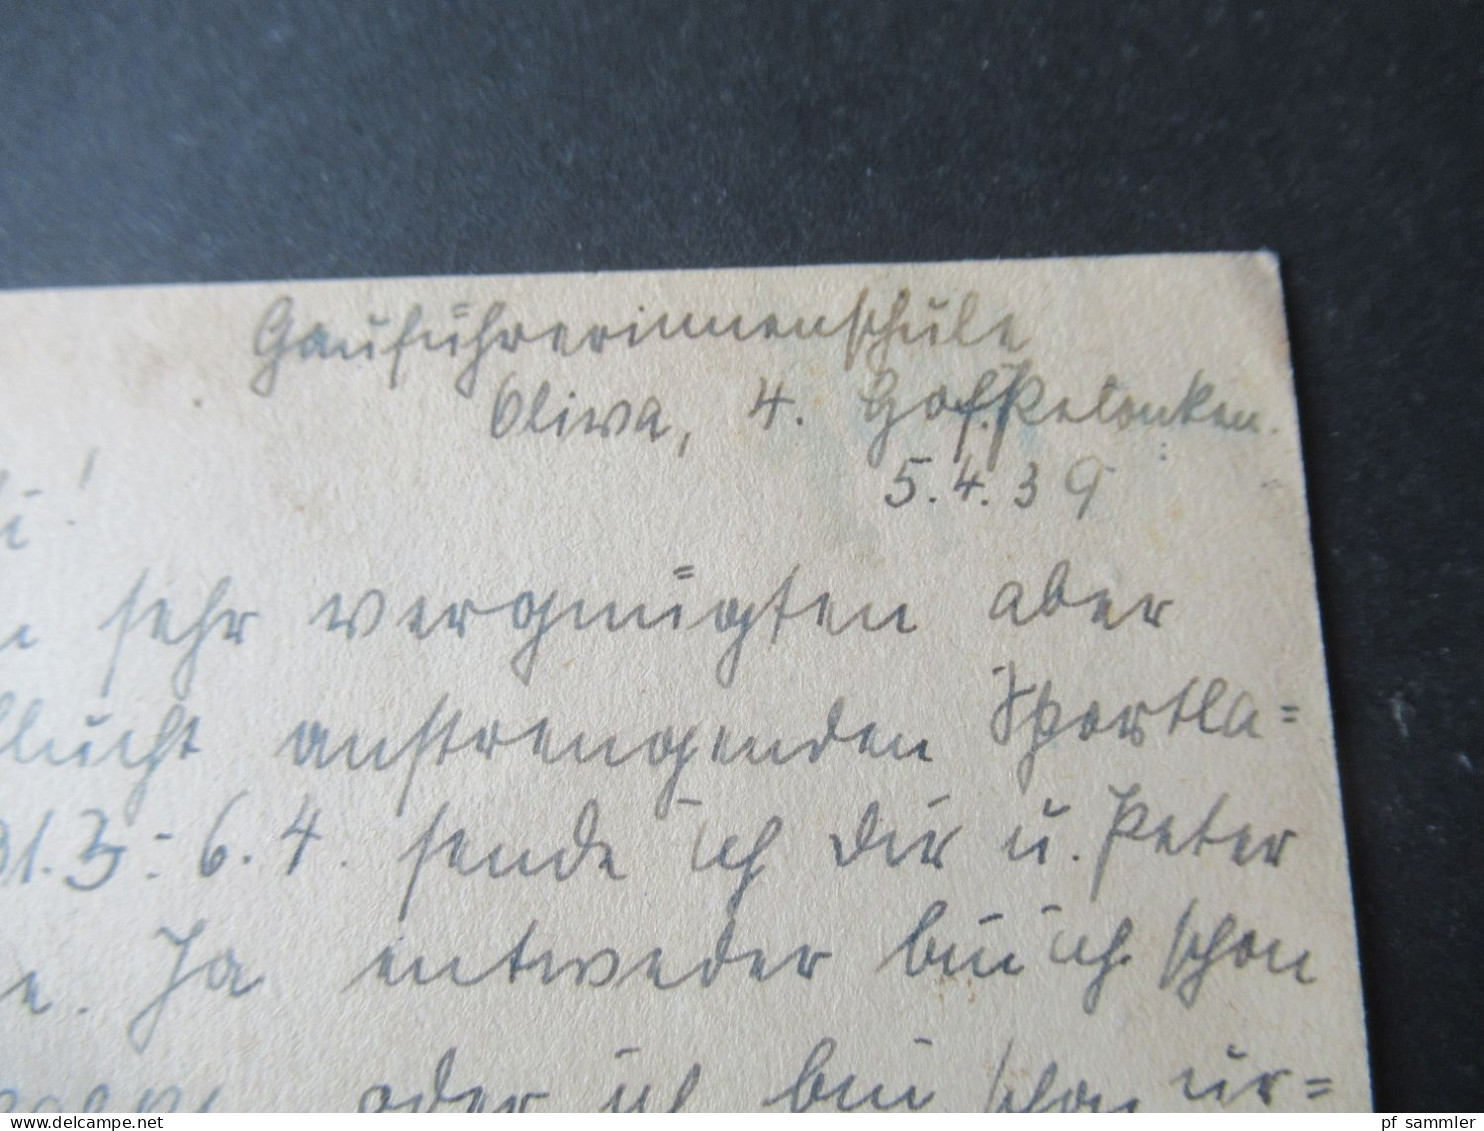 Gauführerinnenschule
Oliva, 4. Hof. Pelonken.
5.4.39
i!
sehr vergnügten aber
anstrengenden Sportla=
31.3.-6.4. sende ich Dir u. Peter
e. Ja entweder bin ich schon
oder ich bin schon ur=
pf_sammler - delcampe.net